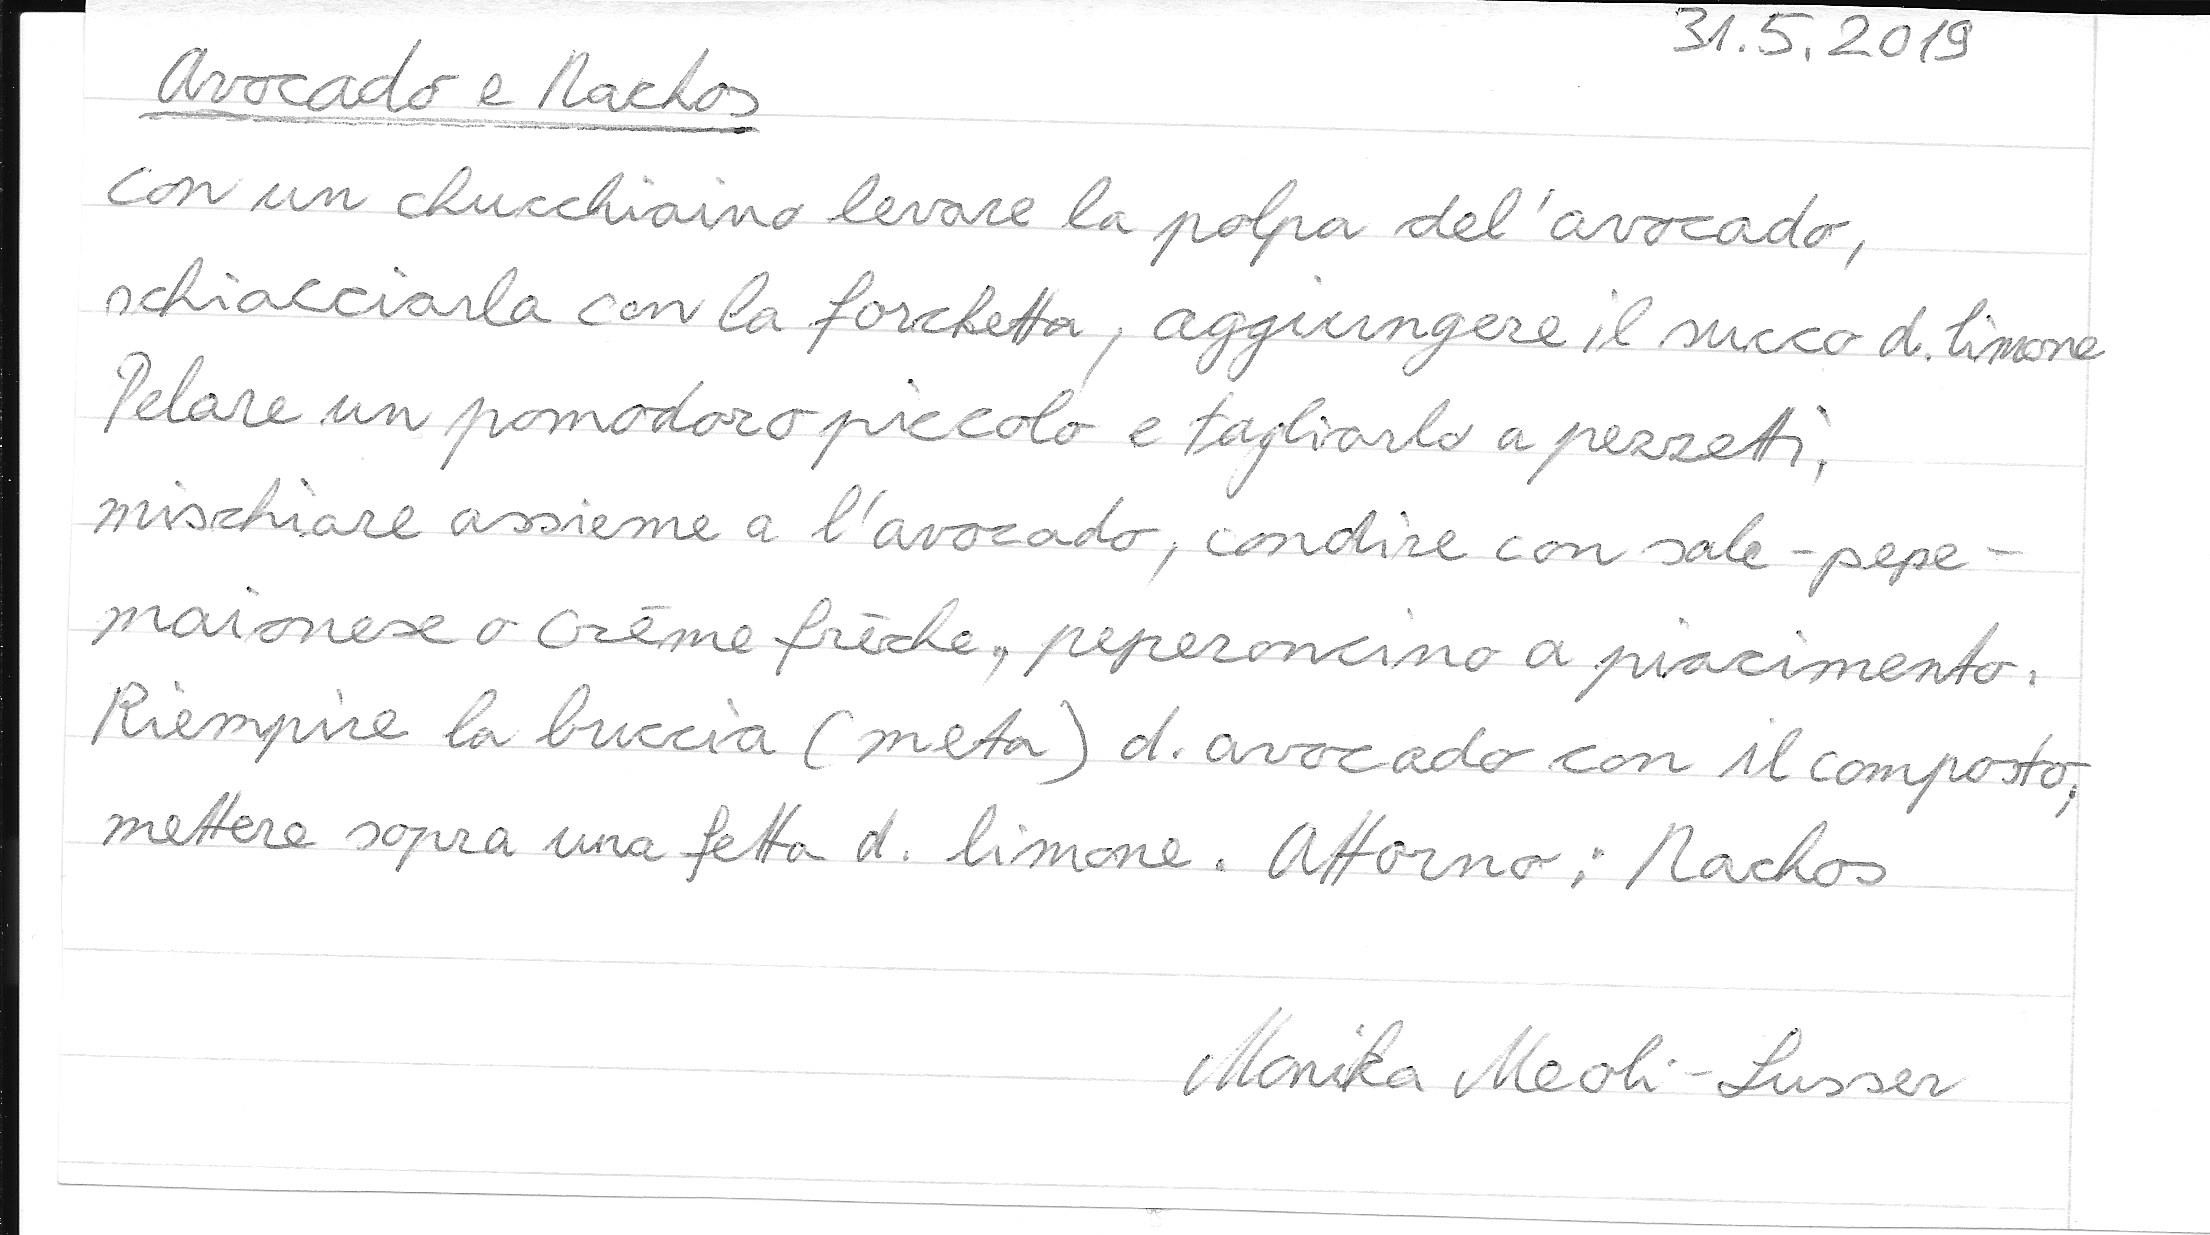 31.5.2019
Avocado e Nachos
con un chucchiaino levare la polpa del'avocado,
schiacciarla con la forchetta, aggiungere il succo d. limone
Pelare un pomodoro piccolo e tagliarlo a pezzetti,
mischiare assieme a l'avocado, condire con sale - pepe -
maionese o Crēme frēche, peperoncino a piacimento.
Riempire la buccia (meta) d. avocado con il composto,
mettere sopra una fetta d. limone. Attorno: Nachos
Monika Meoli-Lusser